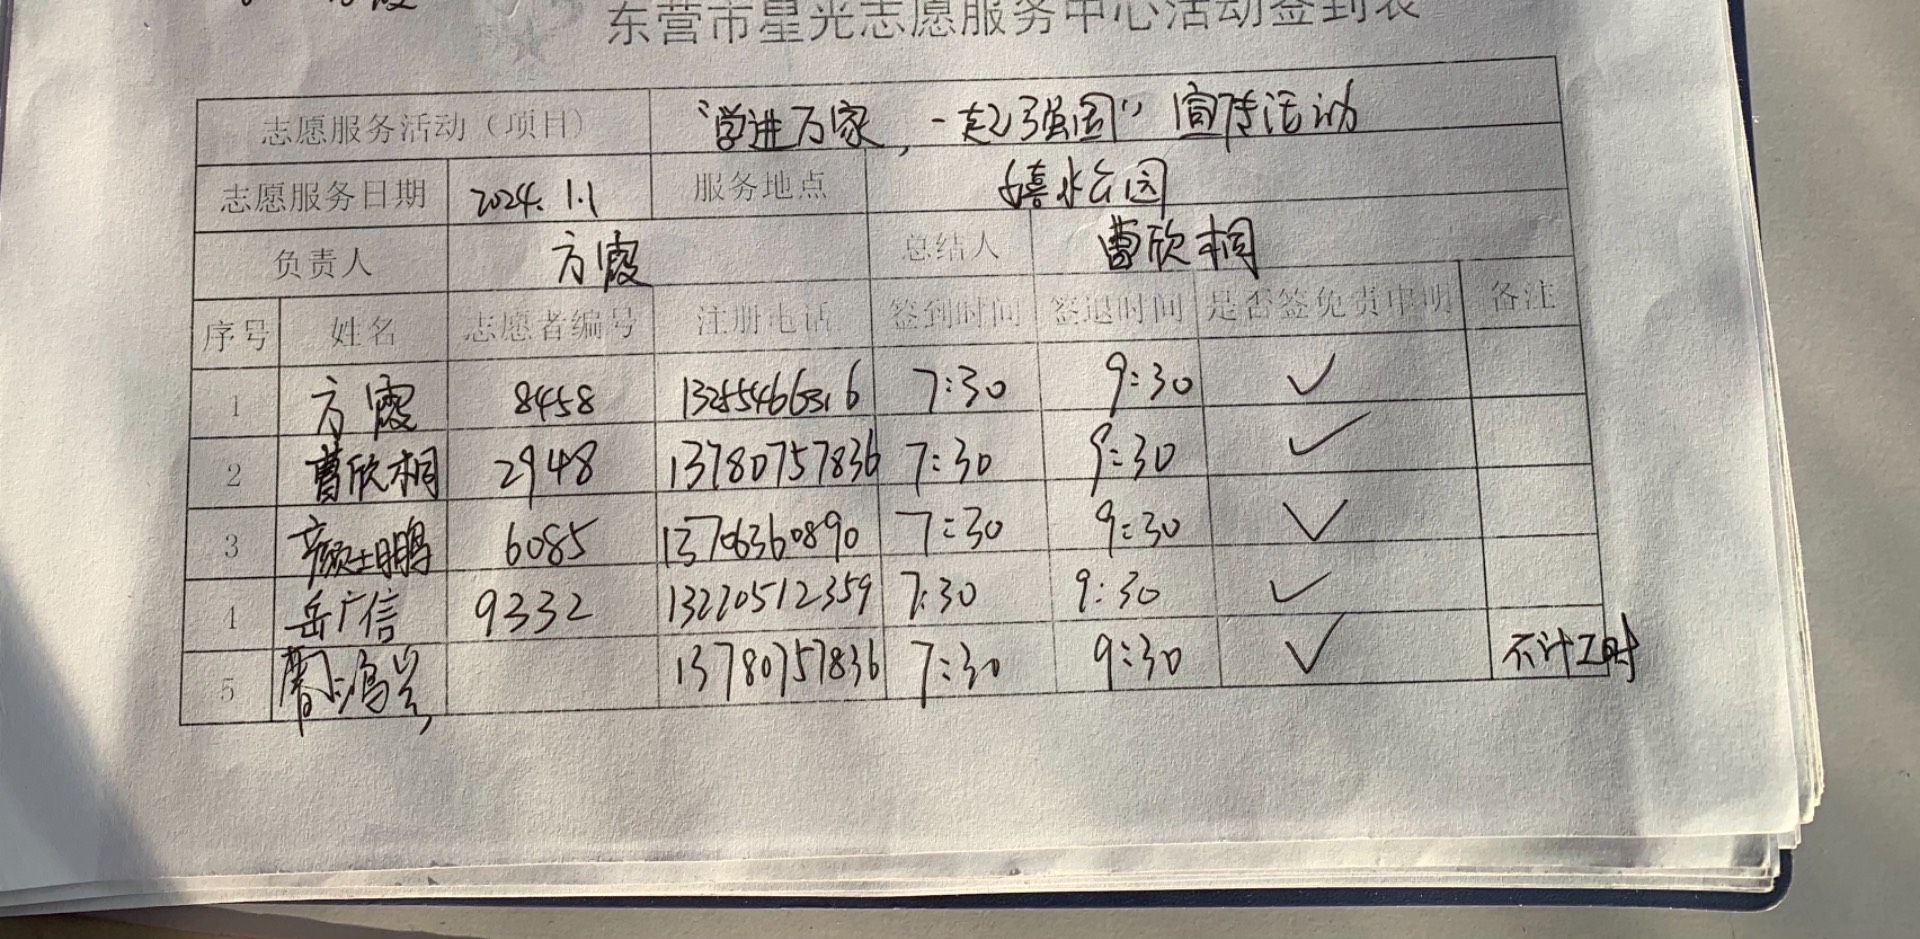 东营市星光志愿服务中心活动签到表
志愿服务活动（项目） “学进万家，一起强国”宣传活动
志愿服务日期 2024.1.1 服务地点 嬉水公园
负责人 方霞 总结人 曹欣桐
序号 姓名 志愿者编号 注册电话 签到时间 签退时间 是否签免责申明 备注
1 方霞 8458 7:30 9:30 ✓
2 曹欣桐 2948 13780757836 7:30 9:30 ✓
3 6085 13706360890 7:30 9:30 ✓
4 岳广信 9332 13220512359 7:30 9:30 ✓
5 13780757836 7:30 9:30 ✓ 不计工时